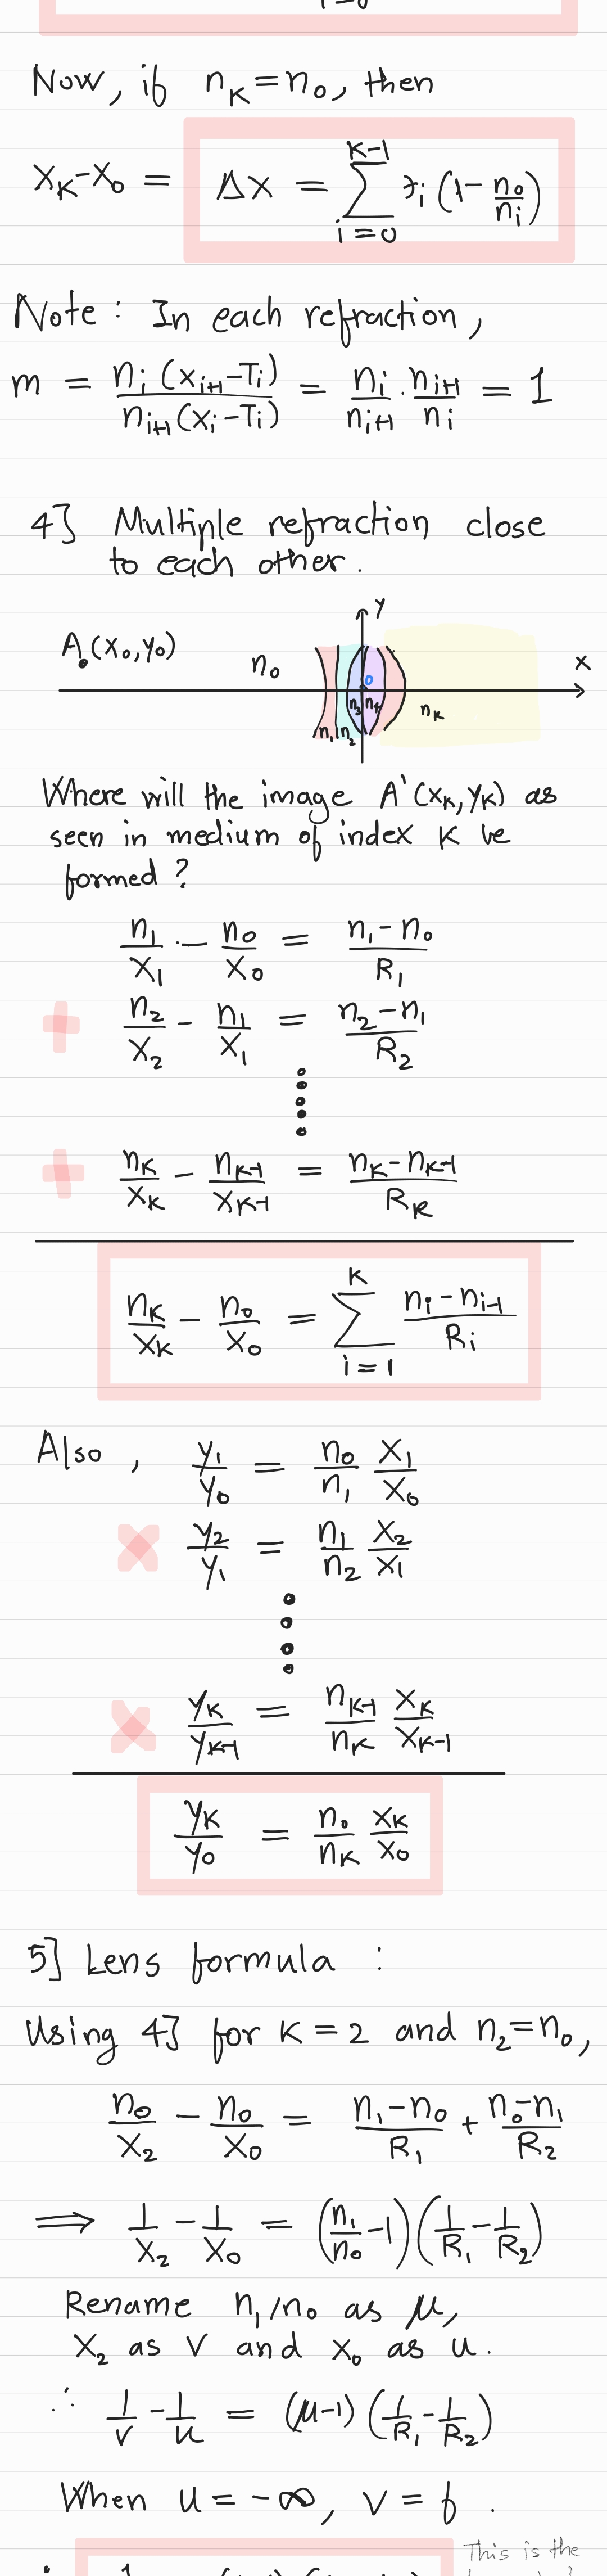 Now, if n_K = n_0, then
x_K - x_0 = Δx = Σ_{i=0}^{K-1} t_i (1 - n_0/n_i)
Note : In each refraction,
m = n_i (x_{i+1} - T_i) / n_{i+1} (x_i - T_i) = n_i/n_{i+1} · n_{i+1}/n_i = 1
4] Multiple refraction close
to each other.
y
A(x_0, y_0)
n_0
x
0
n_1 n_2 n_3 n_4
n_K
Where will the image A'(x_K, y_K) as
seen in medium of index K be
formed ?
n_1/x_1 - n_0/x_0 = (n_1 - n_0)/R_1
+ n_2/x_2 - n_1/x_1 = (n_2 - n_1)/R_2
+ n_K/x_K - n_{K-1}/x_{K-1} = (n_K - n_{K-1})/R_K
n_K/x_K - n_0/x_0 = Σ_{i=1}^{K} (n_i - n_{i-1})/R_i
Also , y_1/y_0 = n_0/n_1 x_1/x_0
× y_2/y_1 = n_1/n_2 x_2/x_1
× y_K/y_{K-1} = n_{K-1}/n_K x_K/x_{K-1}
y_K/y_0 = n_0/n_K x_K/x_0
5] Lens formula :
Using 4] for K = 2 and n_2 = n_0,
n_0/x_2 - n_0/x_0 = (n_1 - n_0)/R_1 + (n_0 - n_1)/R_2
⟹ 1/x_2 - 1/x_0 = (n_1/n_0 - 1) (1/R_1 - 1/R_2)
Rename n_1/n_0 as μ,
x_2 as v and x_0 as u.
∴ 1/v - 1/u = (μ-1) (1/R_1 - 1/R_2)
When u = -∞, v = f .
This is the